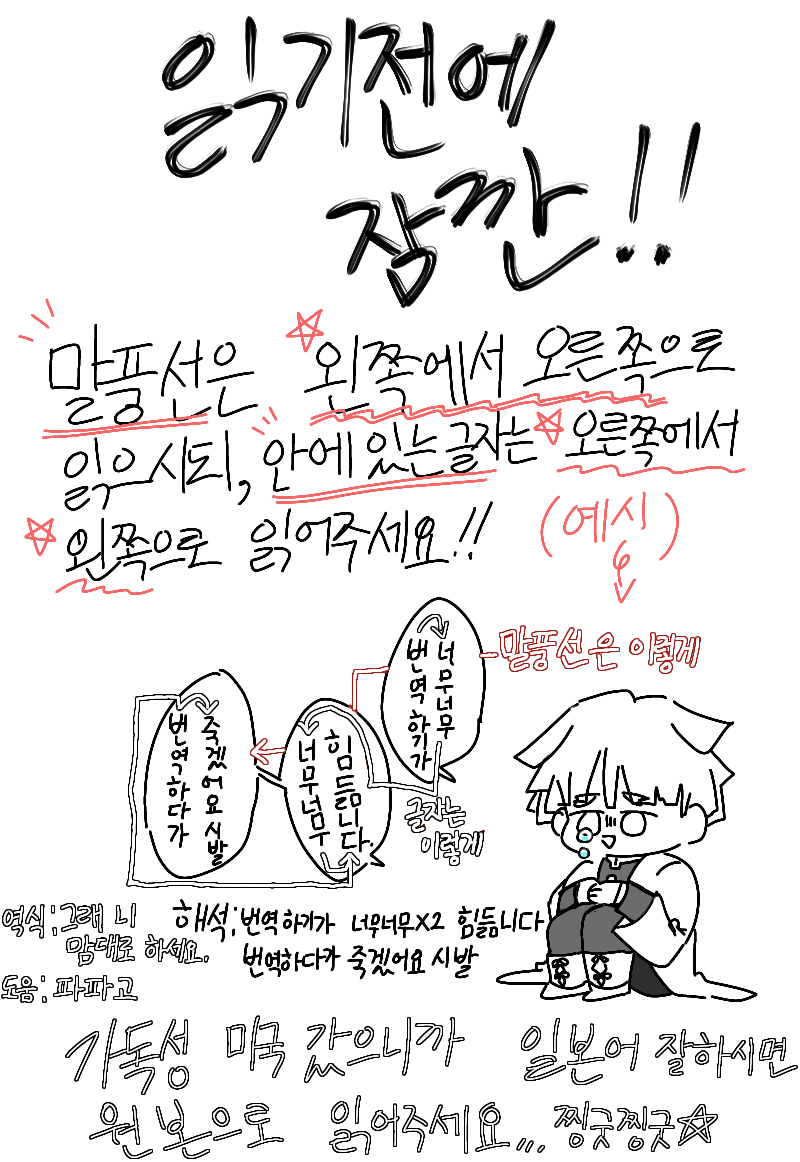 읽기전에
잠깐!!
말풍선은 왼쪽에서 오른쪽으로
읽으시되, 안에 있는 글자는 오른쪽에서
왼쪽으로 읽어주세요!!
(예시)
말풍선은 이렇게
너무너무
번역하기가
힘듦니다.
너무넘무
죽겠어요 시발
번역하다가
글자는
이렇게
역식:그래 니
맘대로 하세요.
도움: 파파고
해석:번역하기가 너무너무X2 힘듦니다
번역하다가 죽겠어요 시발
가독성 미국 갔으니까 일본어 잘하시면
원본으로 읽어주세요... 찡긋찡긋☆